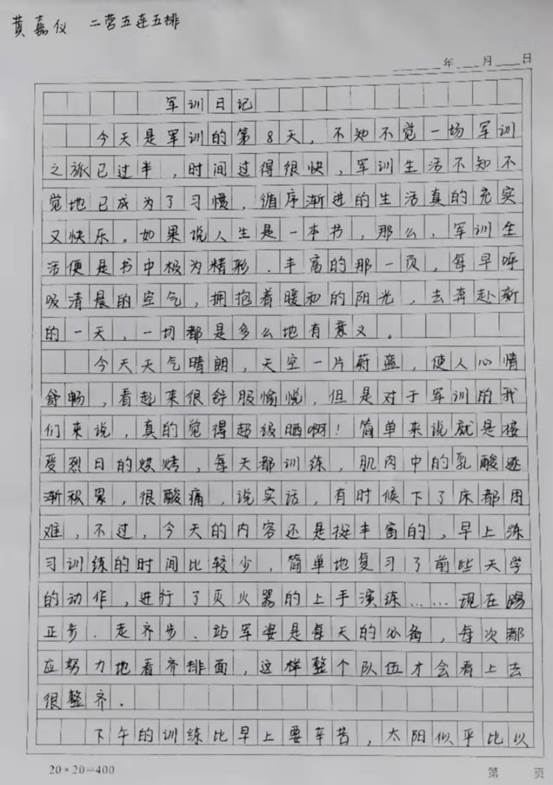 黄嘉仪 二营五连五排
年 月 日
军训日记
今天是军训的第8天，不知不觉一场军训
之旅已过半，时间过得很快，军训生活不知不
觉地已成为了习惯，循序渐进的生活真的充实
又快乐。如果说人生是一本书，那么，军训生
活便是书中极为情形、丰富的那一页，每早呼
吸清晨的空气，拥抱着暖和的阳光，去奔赴新
的一天，一切都是多么地有意义。
今天天气晴朗，天空一片蔚蓝，使人心情
舒畅，看起来很舒服愉悦，但是对于军训的我
们来说，真的觉得超级晒啊！简单来说就是接
受烈日的烧烤，每天都训练，肌肉中的乳酸逐
渐积累，很酸痛，说实话，有时候下了床都困
难，不过，今天的内容还是挺丰富的，早上练
习训练的时间比较少，简单地复习了前些天学
的动作，进行了灭火器的上手演练……现在踢
正步、走齐步、站军姿是每天的必备，每次都
应努力地看齐排面，这样整个队伍才会看上去
很整齐。
下午的训练比早上要辛苦，太阳似乎比以
20×20=400
第 页